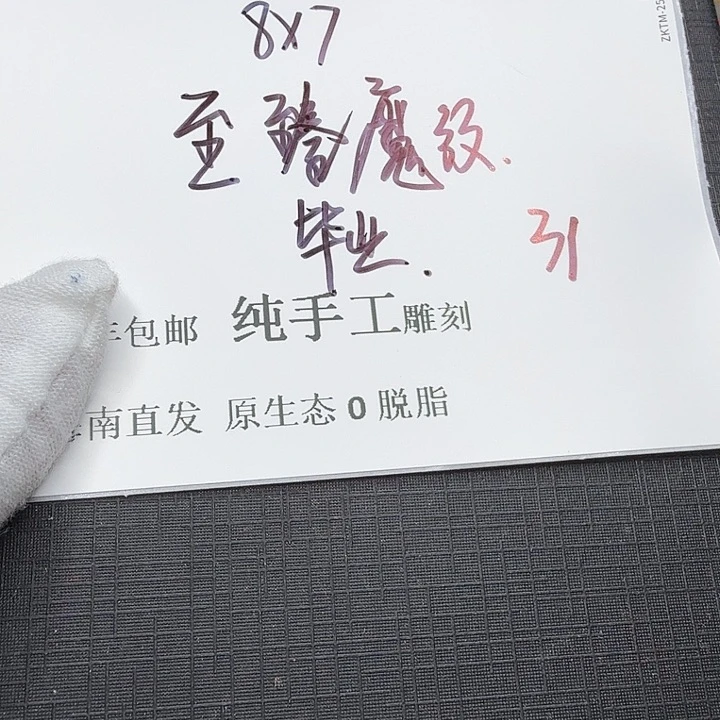 ZKTM-25
8x7
至臻魔纹.
毕业. 31
包邮 纯手工雕刻
南直发 原生态0脱脂